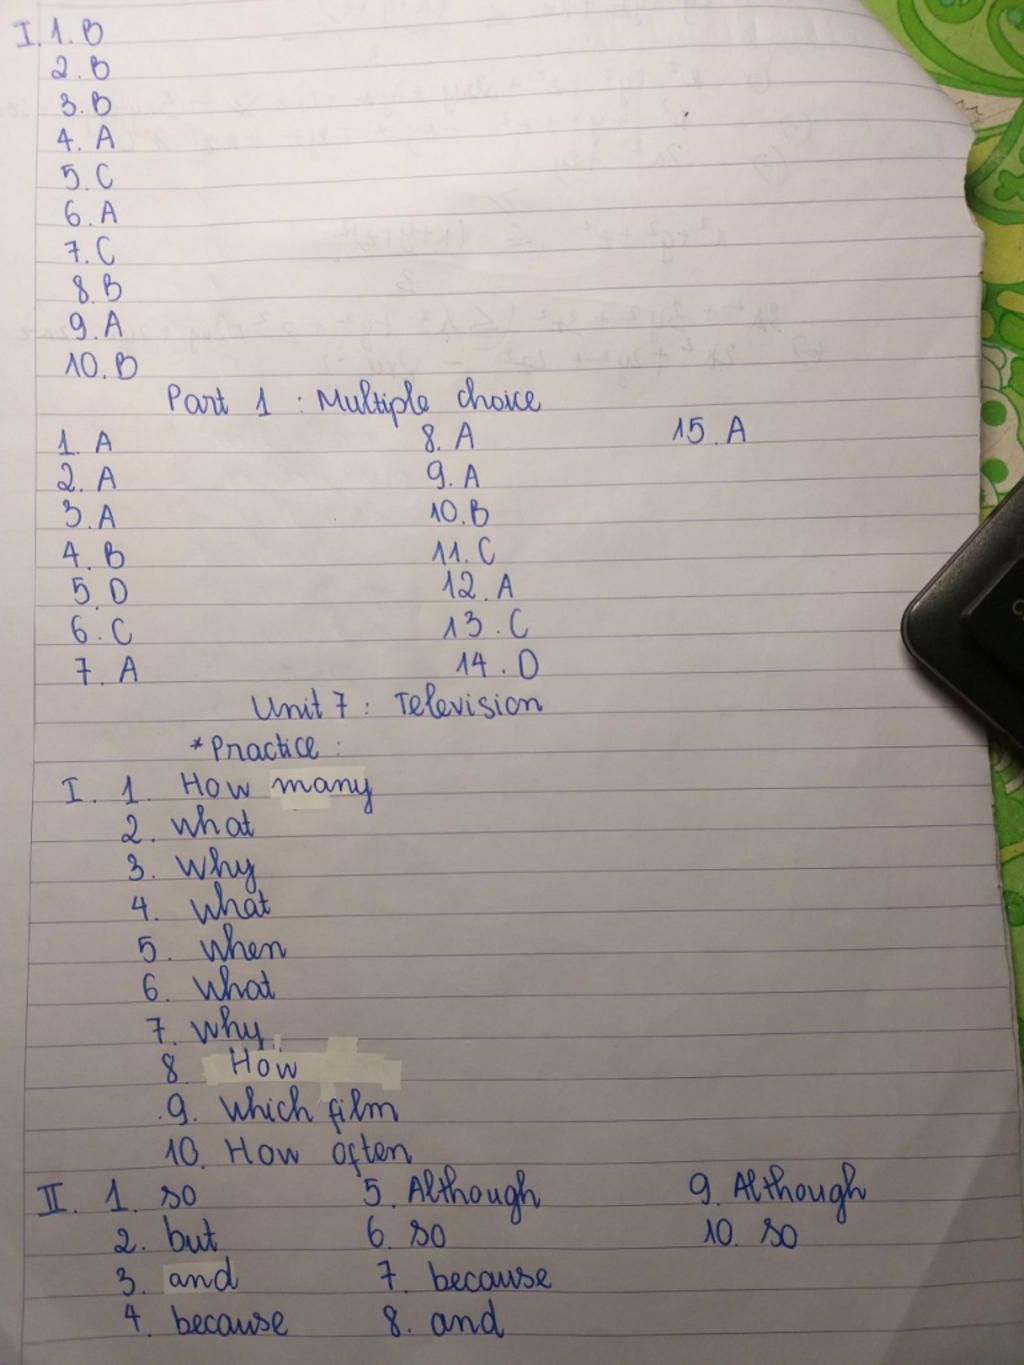 I. 1. B
2. B
3. B
4. A
5. C
6. A
7. C
8. B
9. A
10. B
Part 1 : Multiple choice
1. A 8. A 15. A
2. A 9. A
3. A 10. B
4. B 11. C
5. D 12. A
6. C 13. C
7. A 14. D
Unit 7 : Television
* Practice :
I. 1. How many
2. what
3. Why
4. what
5. when
6. what
7. why
8 How
9. which film
10. How often
II. 1. so 5. Although 9. Although
2. but 6. so 10. so
3. and 7. because
4. because 8. and